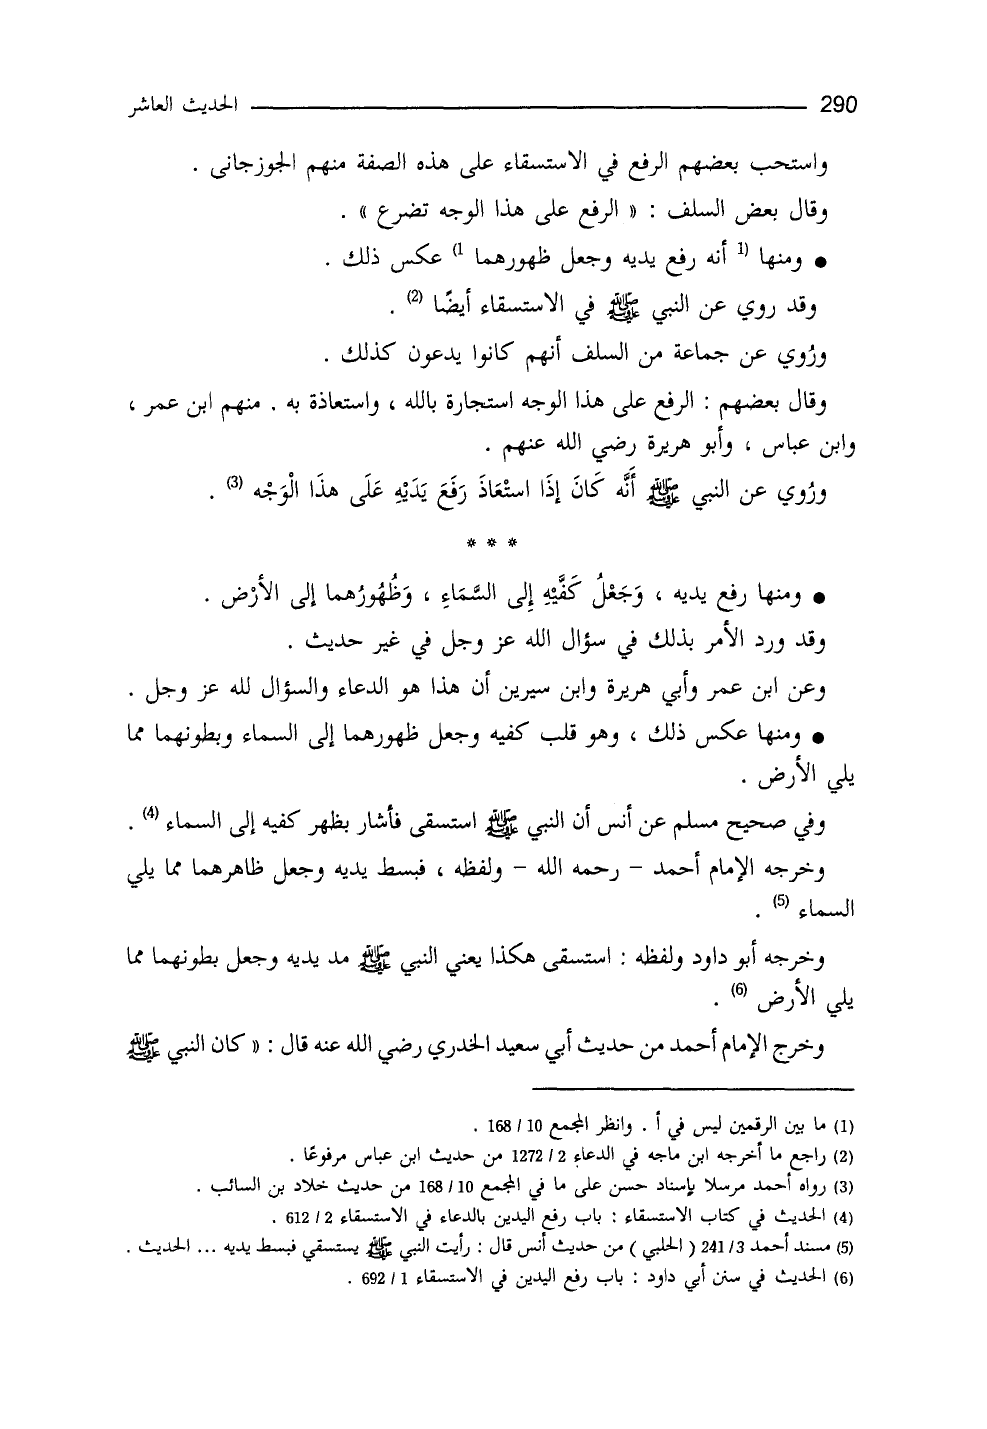 290 الحديث العاشر
واستحب بعضهم الرفع في الاستسقاء على هذه الصفة منهم الجوزجانى .
وقال بعض السلف : « الرفع على هذا الوجه تضرع » .
● ومنها (1 أنه رفع يديه وجعل ظهورهما 1) عكس ذلك .
وقد روي عن النبي ﷺ في الاستسقاء أيضًا (2) .
ورُوي عن جماعة من السلف أنهم كانوا يدعون كذلك .
وقال بعضهم : الرفع على هذا الوجه استجارة بالله ، واستعاذة به . منهم ابن عمر ،
وابن عباس ، وأبو هريرة رضي الله عنهم .
ورُوي عن النبي ﷺ أَنَّه كَانَ إذَا استْعَاذَ رَفَعَ يَدَيْهِ عَلَى هذَا الْوَجْه (3) .
* * *
● ومنها رفع يديه ، وَجَعْلُ كَفَّيْهِ إِلى السَّمَاءِ ، وَظُهُورُهما إلى الأرْض .
وقد ورد الأمر بذلك في سؤال الله عز وجل في غير حديث .
وعن ابن عمر وأبي هريرة وابن سيرين أن هذا هو الدعاء والسؤال لله عز وجل .
● ومنها عكس ذلك ، وهو قلب كفيه وجعل ظهورهما إلى السماء وبطونهما مما
يلي الأرض .
وفي صحيح مسلم عن أنس أن النبي ﷺ استسقى فأشار بظهر كفيه إلى السماء (4) .
وخرجه الإمام أحمد – رحمه الله – ولفظه ، فبسط يديه وجعل ظاهرهما مما يلي
السماء (5) .
وخرجه أبو داود ولفظه : استسقى هكذا يعني النبي ﷺ مد يديه وجعل بطونهما مما
يلي الأرض (6) .
وخرج الإمام أحمد من حديث أبي سعيد الخدري رضي الله عنه قال : « كان النبي ﷺ
(1) ما بين الرقمين ليس في أ . وانظر المجمع 10 / 168 .
(2) راجع ما أخرجه ابن ماجه في الدعاء 2 / 1272 من حديث ابن عباس مرفوعًا .
(3) رواه أحمد مرسلا بإسناد حسن على ما في المجمع 10 / 168 من حديث خلاد بن السائب .
(4) الحديث في كتاب الاستسقاء : باب رفع اليدين بالدعاء في الاستسقاء 2 / 612 .
(5) مسند أحمد 3 / 241 ( الحلبي ) من حديث أنس قال : رأيت النبي ﷺ يستسقي فبسط يديه ... الحديث .
(6) الحديث في سنن أبي داود : باب رفع اليدين في الاستسقاء 1 / 692 .